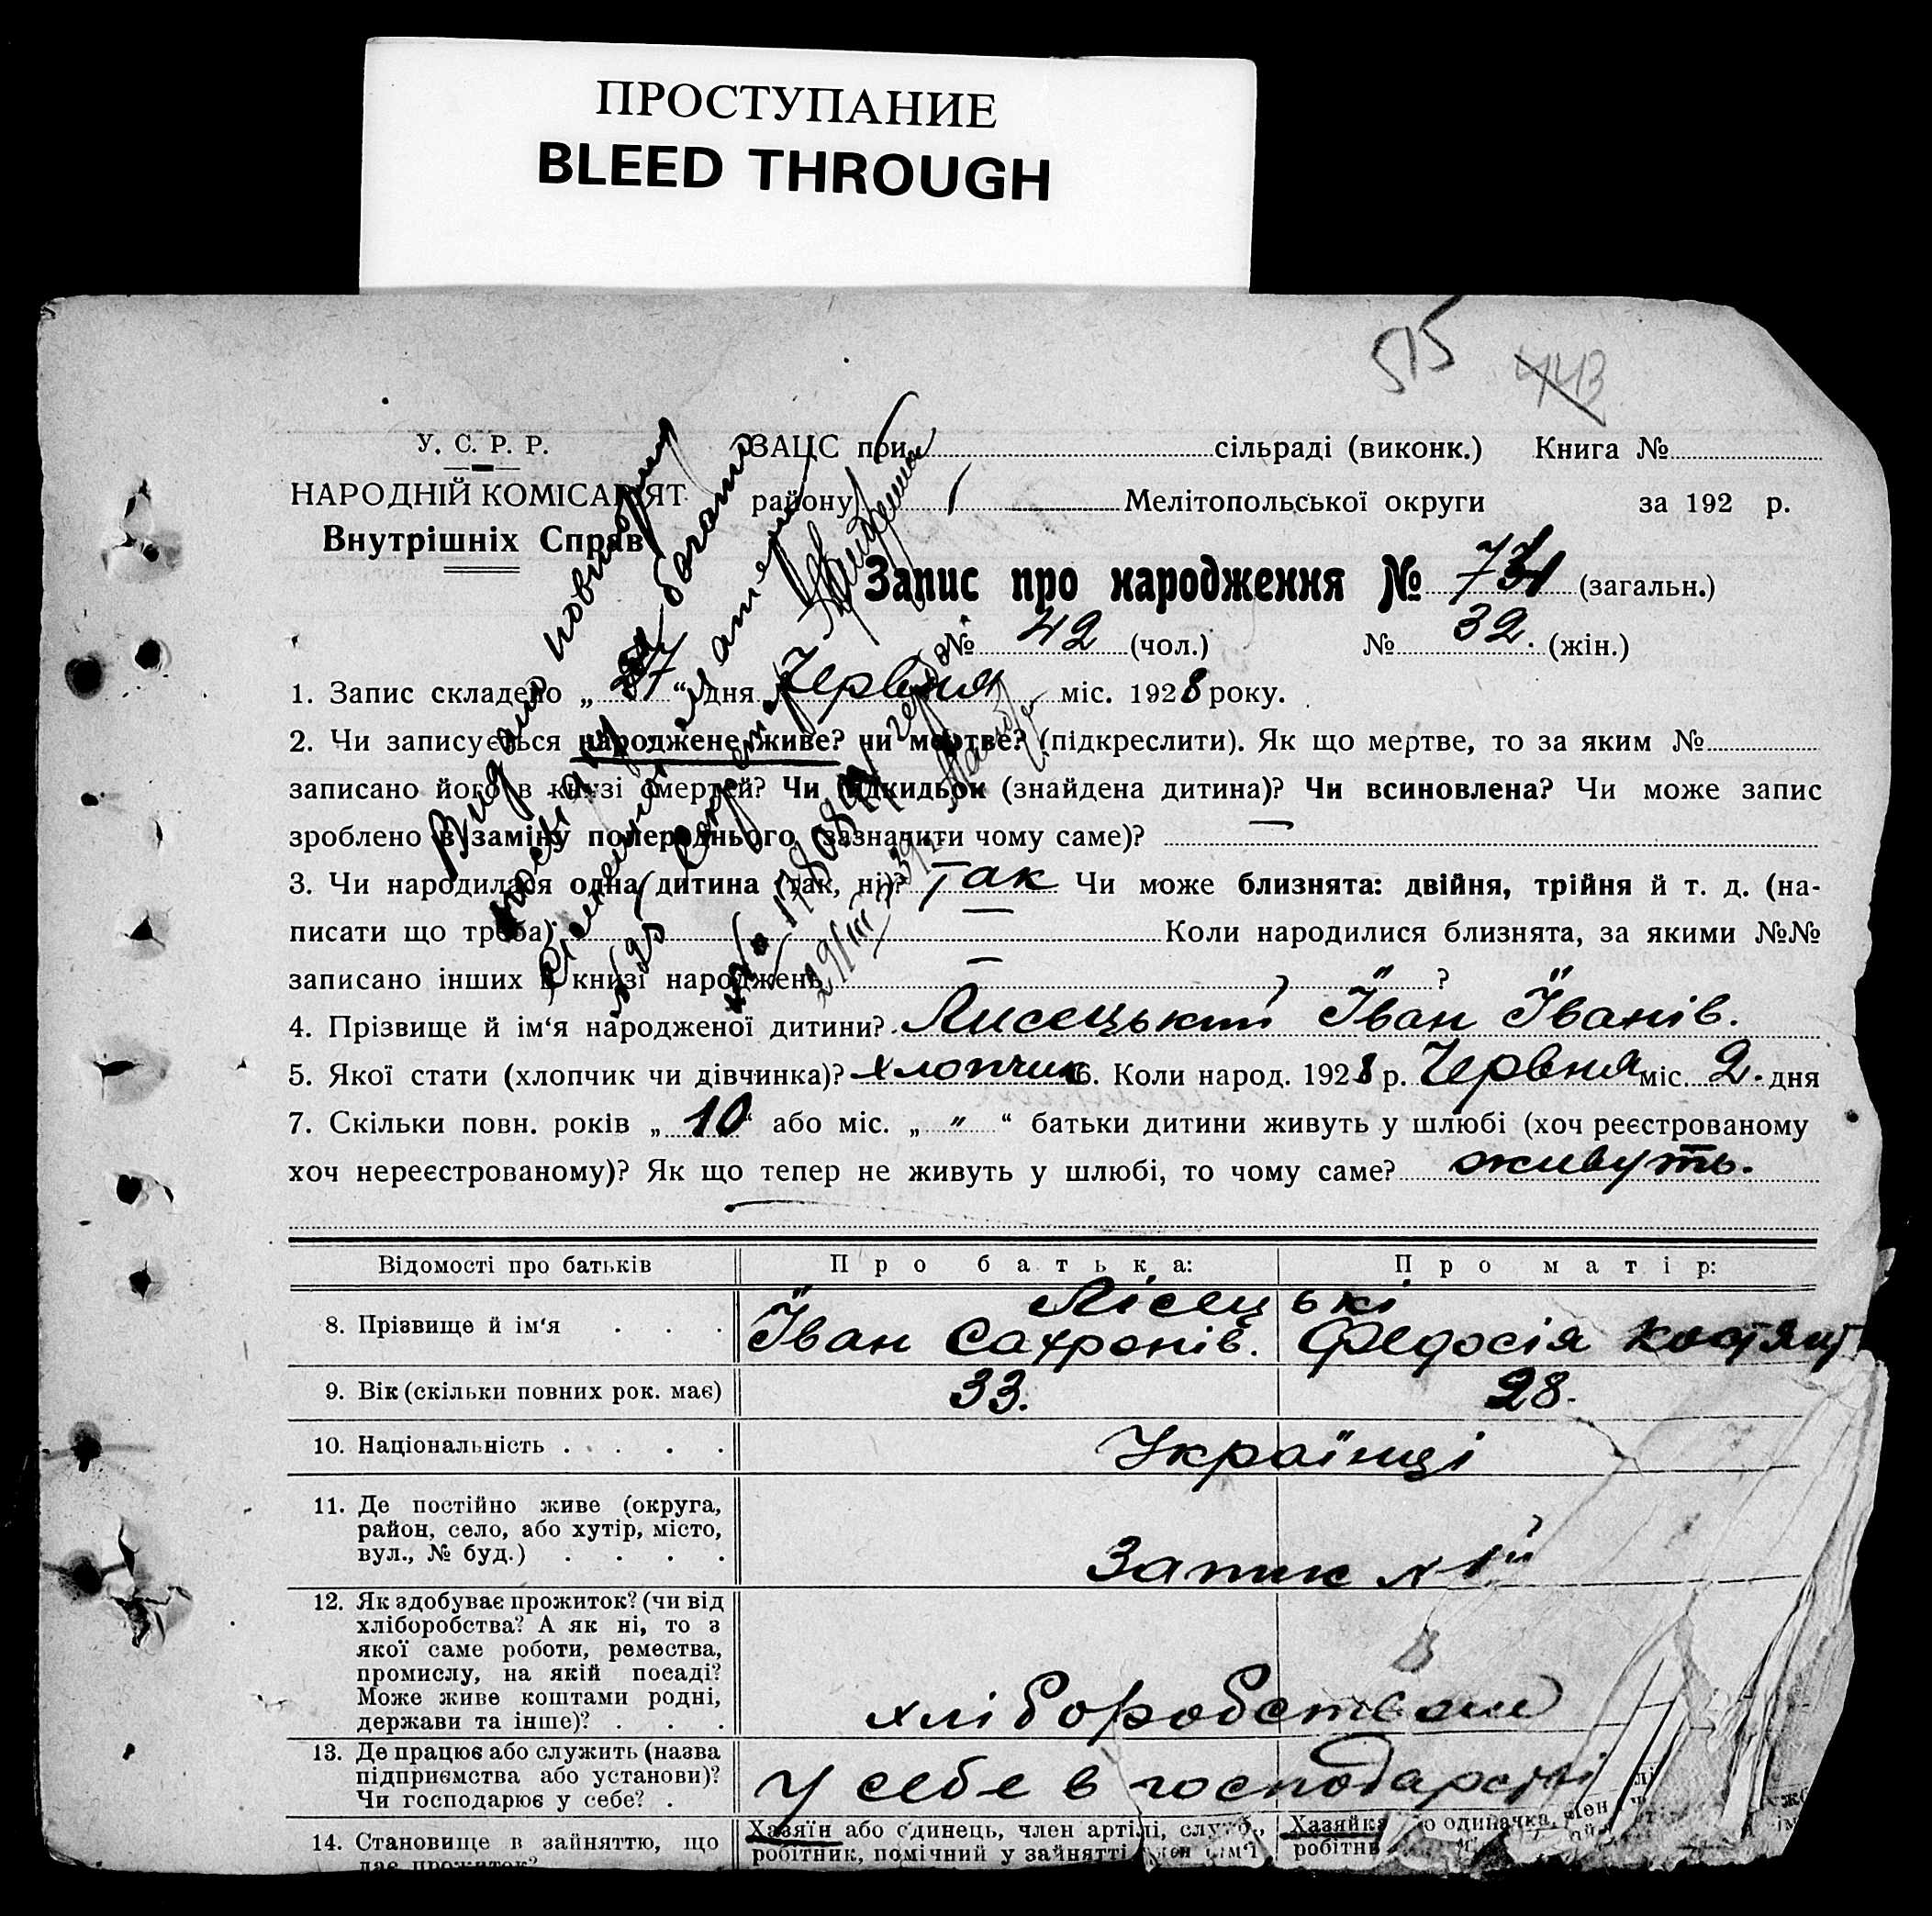 ПРОСТУПАНИЕ
BLEED THROUGH
515 443
У. С. Р. Р.
НАРОДНІЙ КОМІСАРІЯТ
Внутрішніх Справ
ЗАЦС при сільраді (виконк.) Книга №
району 1 Мелітопольської округи за 192 р.
Запис про народження № 731 (загальн.)
№ 42 (чол.) № 32. (жін.)
1. Запис складено „ 7 “ дня Червня міс. 1928 року.
2. Чи записується народжене живе? чи мертве? (підкреслити). Як що мертве, то за яким №
записано його в книзі смертей? Чи підкидьок (знайдена дитина)? Чи всиновлена? Чи може запис
зроблено в заміну попереднього (зазначити чому саме)? —
3. Чи народилася одна дитина (так, ні)? Так Чи може близнята: двійня, трійня й т. д. (на-
писати що треба) — Коли народилися близнята, за якими №№
записано інших в книзі народжень — ?
4. Прізвище й ім‘я народженої дитини? Лисецький Іван Іванів.
5. Якої стати (хлопчик чи дівчинка)? хлопчик 6. Коли народ. 1928 р. Червня міс. 2. дня
7. Скільки повн. років „ 10 “ або міс. „ " “ батьки дитини живуть у шлюбі (хоч реєстрованому
хоч нереєстрованому)? Як що тепер не живуть у шлюбі, то чому саме? живуть.
Видано повторну
Відомості про батьків Про батька: Про матір:
Лісець ькі
8. Прізвище й ім‘я . . . Іван Сахронів. Федосія Костянт
9. Вік (скільки повних рок. має) 33. 28.
10. Національність . . . . Українці
11. Де постійно живе (округа,
район, село, або хутір, місто,
вул., № буд.) . . . . Запис № 1й
12. Як здобуває прожиток? (чи від
хліборобства? А як ні, то з
якої саме роботи, ремества,
промислу, на якій посаді?
Може живе коштами родні,
держави та інше)? . . . хліборобством
13. Де працює або служить (назва
підприємства або установи)?
Чи господарює у себе? . У себе в господарстві
14. Становище в зайняттю, що
дає прожиток?
Хазяїн або одинець, член артілі, служб.,
робітник, помічний у зайнятті член сім‘ї
Хазяйка одиначка, член
робітн